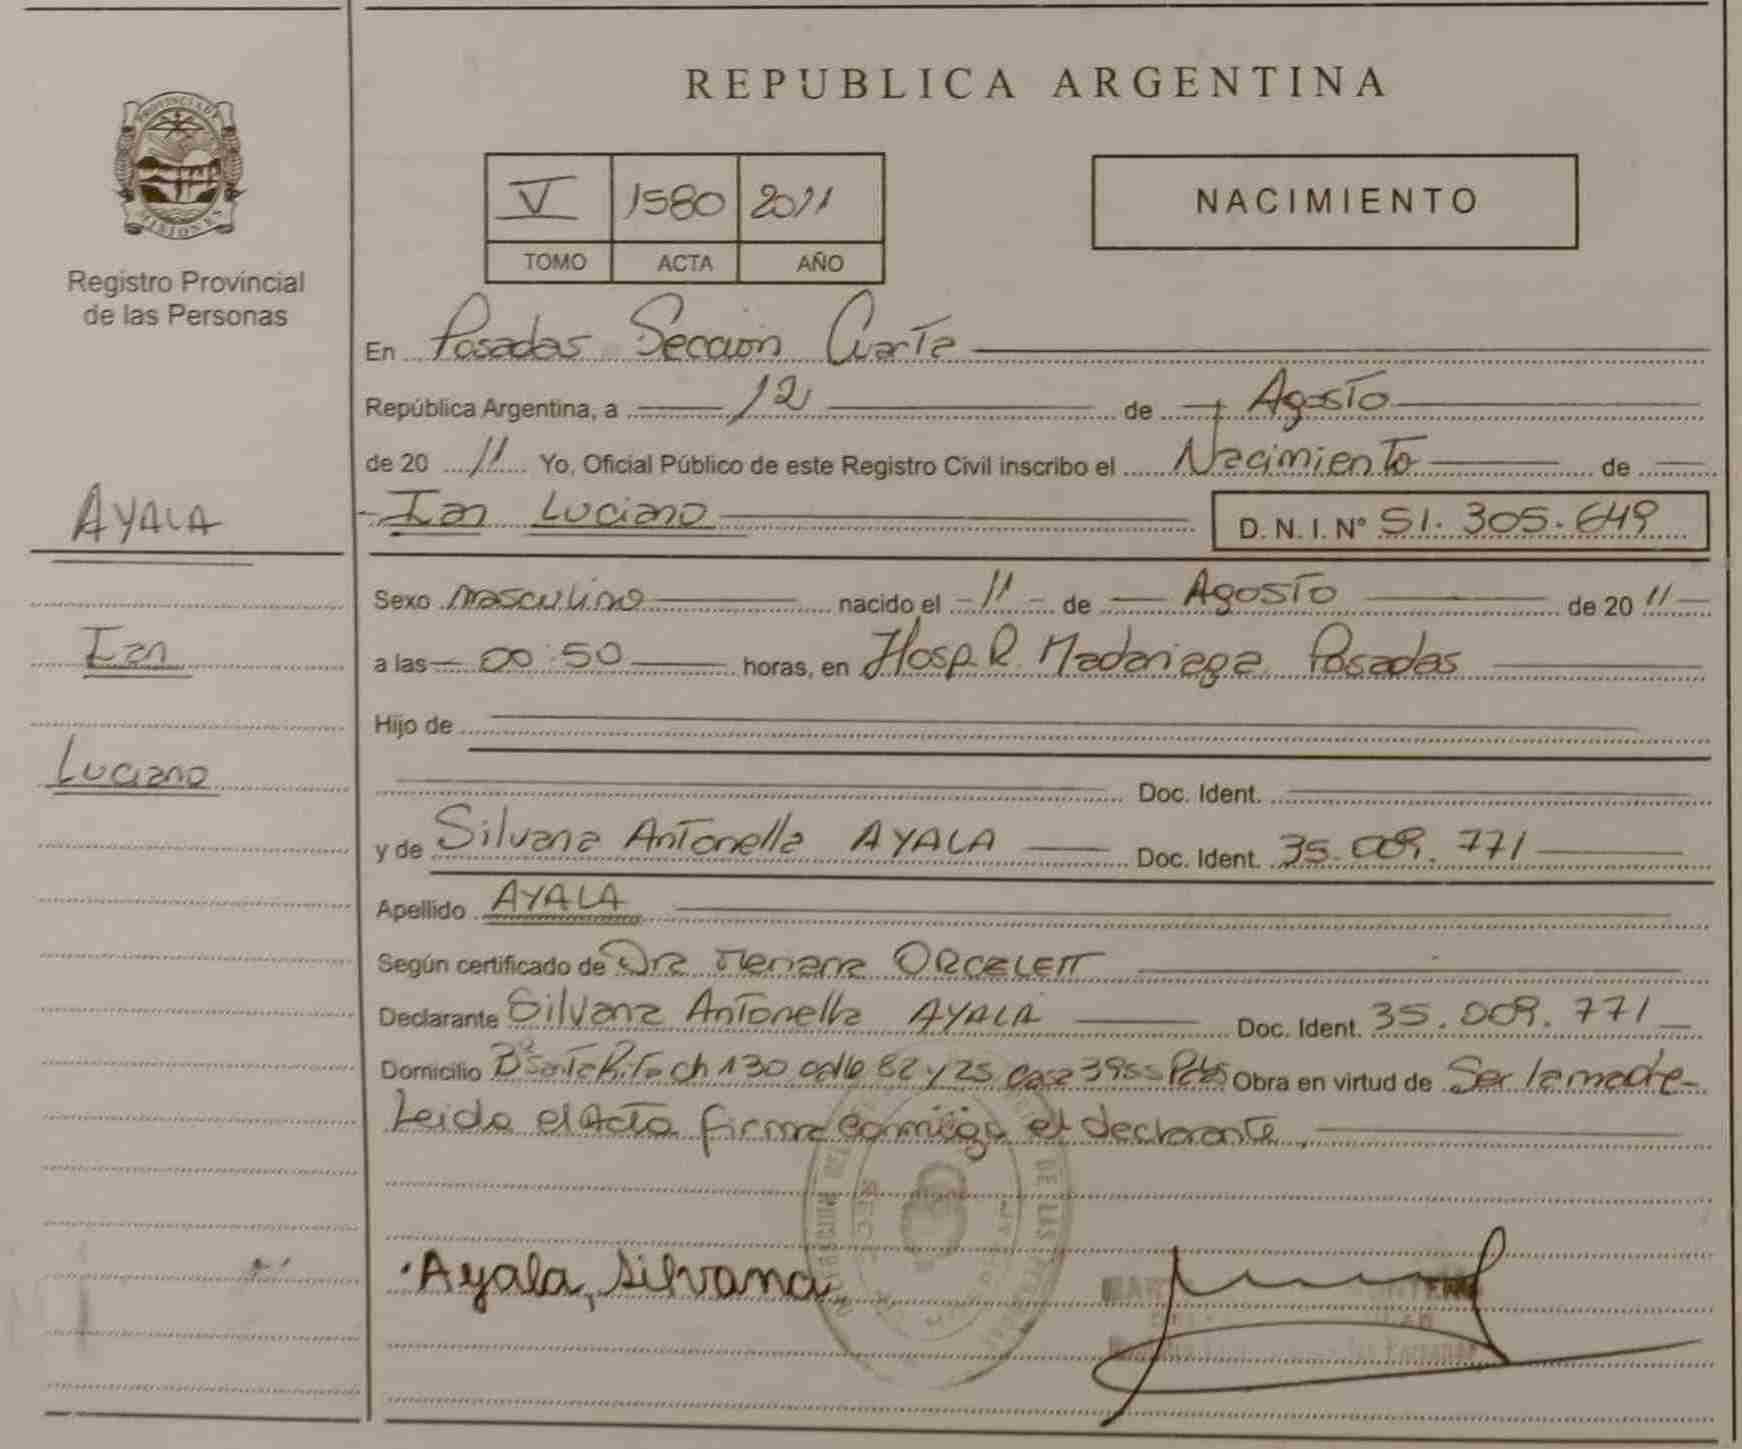 PROVINCIA DE
MISIONES
Registro Provincial
de las Personas
AYALA
Ian
Luciano
REPUBLICA ARGENTINA
V 1580 2011
TOMO ACTA AÑO
NACIMIENTO
En Posadas Sección Cuarta
República Argentina, a 12 de Agosto
de 20 11 Yo, Oficial Público de este Registro Civil inscribo el Nacimiento de
Ian Luciano D.N.I. Nº 51.305.649
Sexo masculino nacido el 11 de Agosto de 20 11
a las 00:50 horas, en Hosp. R. Madariaga Posadas
Hijo de
Doc. Ident.
y de Silvana Antonella AYALA Doc. Ident. 35.009.771
Apellido AYALA
Según certificado de Dra Mariana
Declarante Silvana Antonella AYALA Doc. Ident. 35.009.771
Domicilio Bº Santa Rita ch 130 calle 82 y 25 casa 3955 Pdas Obra en virtud de Ser la madre
Leida el Acta firma conmigo el declarante,
Ayala, Silvana
DE LAS